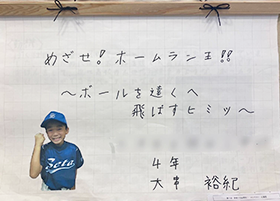 めざせ!ホームラン王!!
～ボールを遠くへ
飛ばすヒミツ～
4年
大串 裕紀
Seta